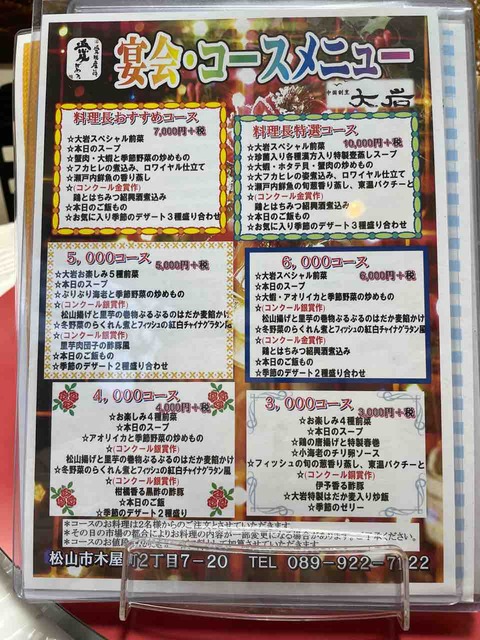 宴会・コースメニュー
中国割烹
大岩
料理長おすすめコース
7,000円+税
☆大岩スペシャル前菜
☆本日のスープ
☆蟹肉・大蝦と季節野菜の炒めもの
☆フカヒレの煮込み、ロワイヤル仕立て
☆瀬戸内鮮魚の香り蒸し
☆(コンクール金賞作)
鶏とはちみつ紹興酒煮込み
☆本日のご飯もの
☆お気に入り季節のデザート3種盛り合わせ
料理長特選コース
10,000円+税
☆大岩スペシャル前菜
☆珍菌入り各種漢方入り特製壺蒸しスープ
☆大蝦・ホタテ貝・蟹肉の炒めもの
☆大フカヒレの姿煮込み、ロワイヤル仕立て
☆瀬戸内鮮魚の旬菜香り蒸し、東温パクチーと
☆(コンクール金賞作)
鶏とはちみつ紹興酒煮込み
☆本日のご飯もの
☆お気に入り季節のデザート3種盛り合わせ
5,000コース
5,000円+税
☆大岩お楽しみ5種前菜
☆本日のスープ
☆ぷりぷり海老と季節野菜の炒めもの
☆(コンクール銀賞作)
松山揚げと里芋の巻物ぷるぷるのはだか麦餡かけ
☆冬野菜のらくれん煮とフィッシュの紅白チャイナグラタン風
☆(コンクール銀賞作)
里芋肉団子の酢豚風
☆本日のご飯もの
☆季節のデザート2種盛り合わせ
6,000コース
6,000円+税
☆大岩スペシャル前菜
☆本日のスープ
☆大蝦・アオリイカと季節野菜の炒めもの
☆(コンクール銀賞作)
松山揚げと里芋の巻物ぷるぷるのはだか麦餡かけ
☆冬野菜のらくれん煮とフィッシュの紅白チャイナグラタン風
☆(コンクール金賞作)
鶏とはちみつ紹興酒煮込み
☆本日のご飯もの
☆季節のデザート2種盛り合わせ
4,000コース
4,000円+税
☆お楽しみ4種前菜
☆本日のスープ
☆アオリイカと季節野菜の炒めもの
☆(コンクール銀賞作)
松山揚げと里芋の巻物ぷるぷるのはだか麦餡かけ
☆冬野菜のらくれん煮とフィッシュの紅白チャイナグラタン風
☆(コンクール銀賞作)
柑橘香る黒酢の酢豚
☆本日のご飯
☆季節のデザート2種盛り
3,000コース
3,000円+税
☆お楽しみ4種前菜
☆本日のスープ
☆鶏の唐揚げと特製春巻
☆小海老のチリ卵ソース
☆フィッシュの旬の菜香り蒸し、東温パクチーと
☆(コンクール銅賞作)
伊予香る酢豚
☆大岩特製はだか麦入り炒飯
☆季節のゼリー
*コースのお料理は2名様からのご注文とさせていただきます。
*その日の市場の都合によりお料理の内容が一部変更になる場合があります。ご了承ください。
*コースのお値段
松山市木屋町2丁目7-20 TEL 089-922-7122